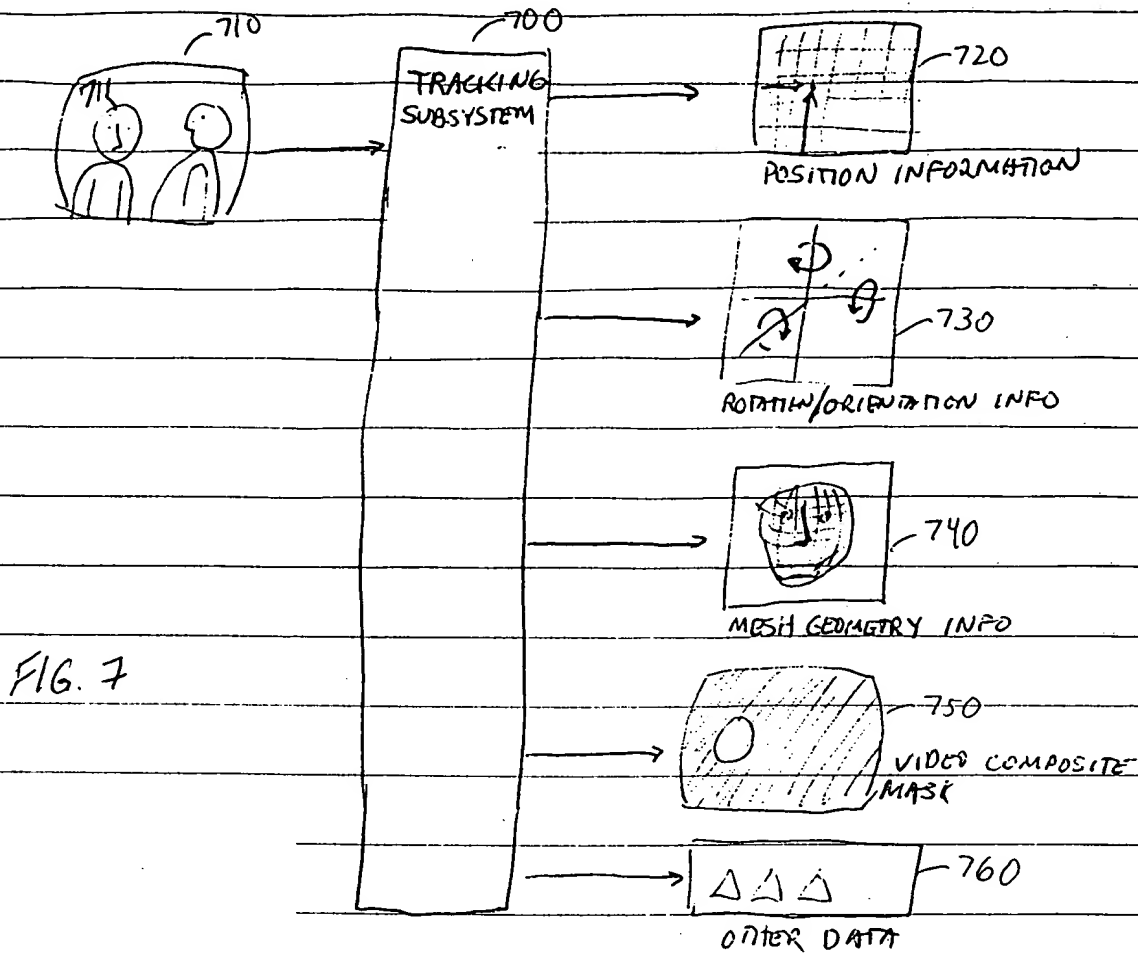 710
711
700
TRACKING
SUBSYSTEM
720
POSITION INFORMATION
730
ROTATION/ORIENTATION INFO
740
MESH GEOMETRY INFO
FIG. 7
750
VIDEO COMPOSITE
MASK
760
OTHER DATA